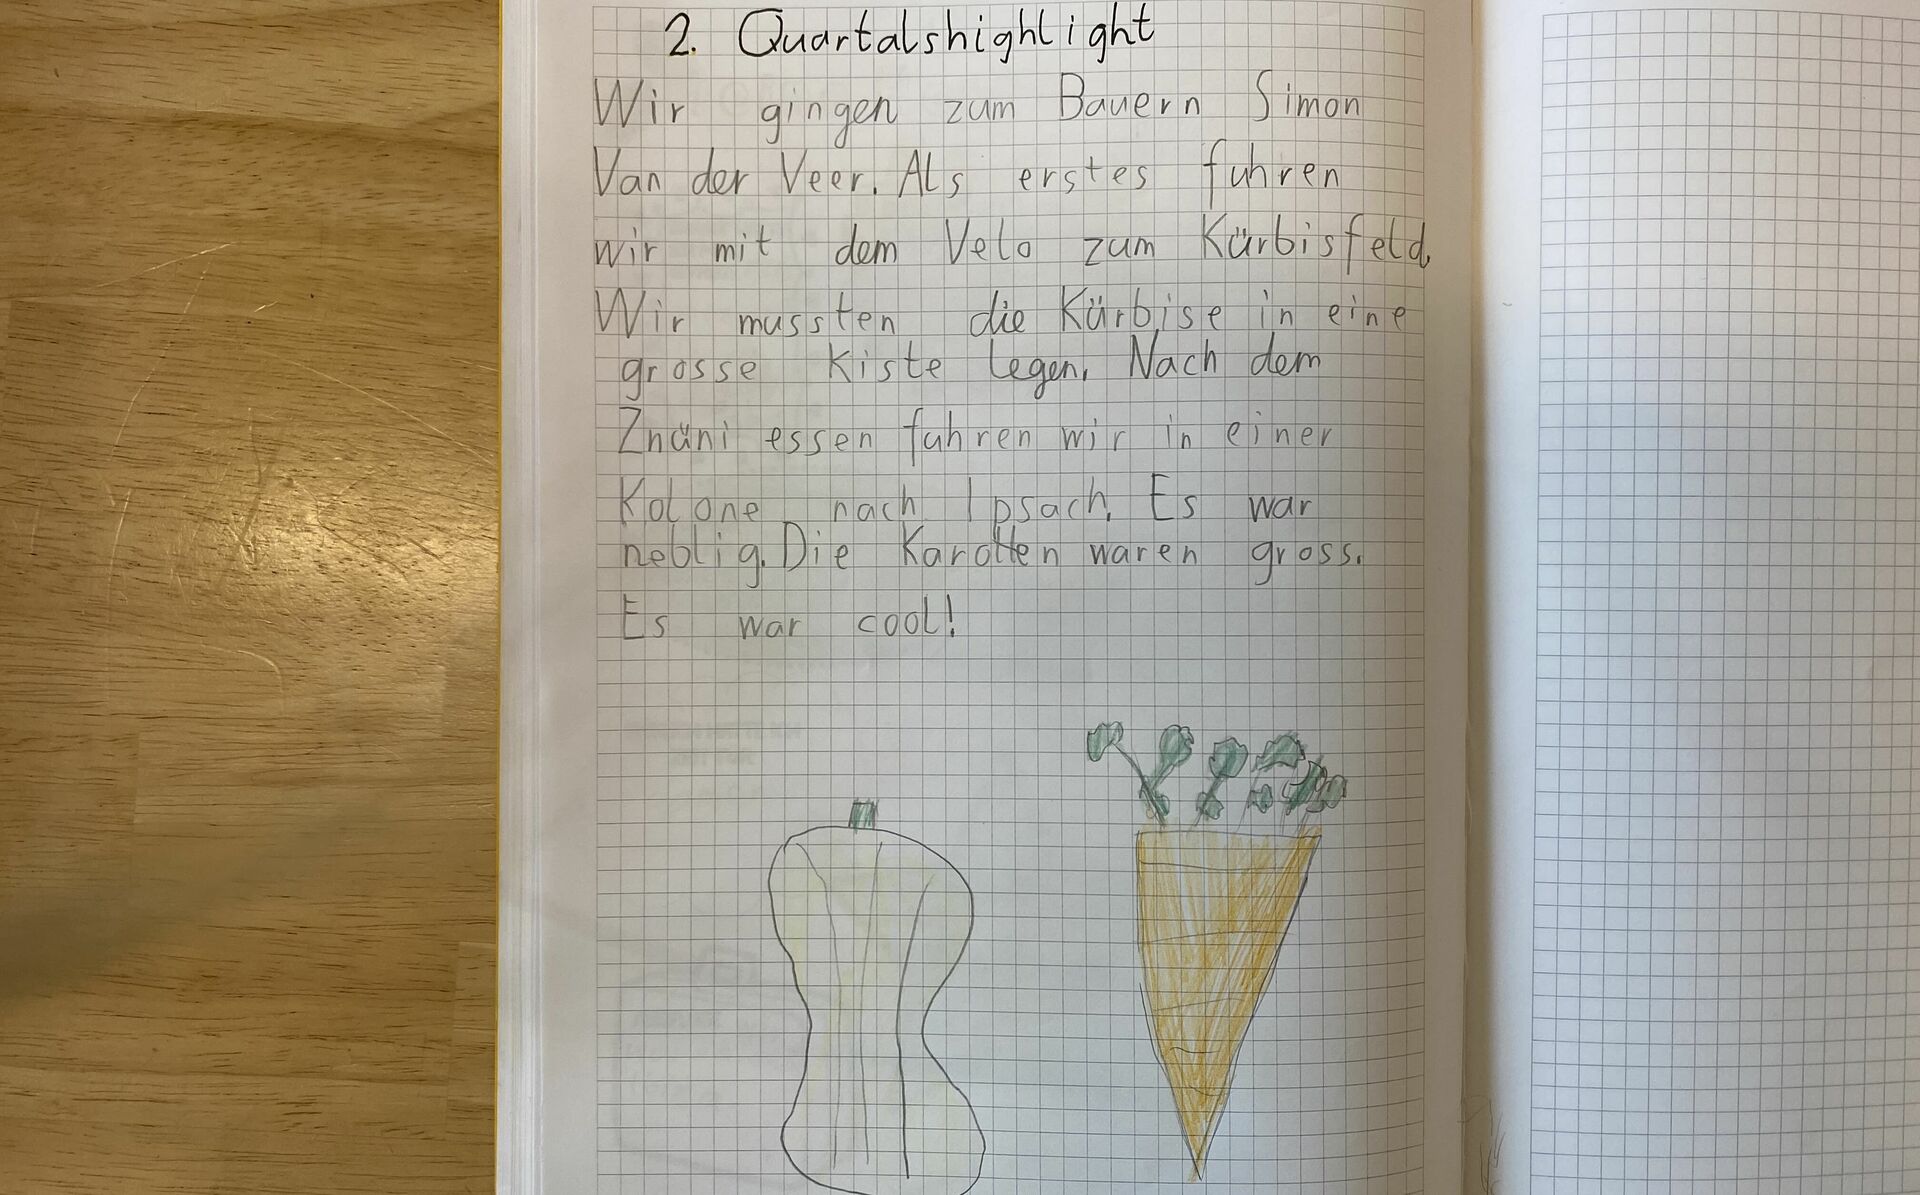 2. Quartalshighlight
Wir gingen zum Bauern Simon
Van der Veer. Als erstes fuhren
wir mit dem Velo zum Kürbisfeld.
Wir mussten die Kürbise in eine
grosse Kiste legen. Nach dem
Znäni essen fuhren wir in einer
Kolone nach Ipsach. Es war
neblig. Die Karotten waren gross.
Es war cool!